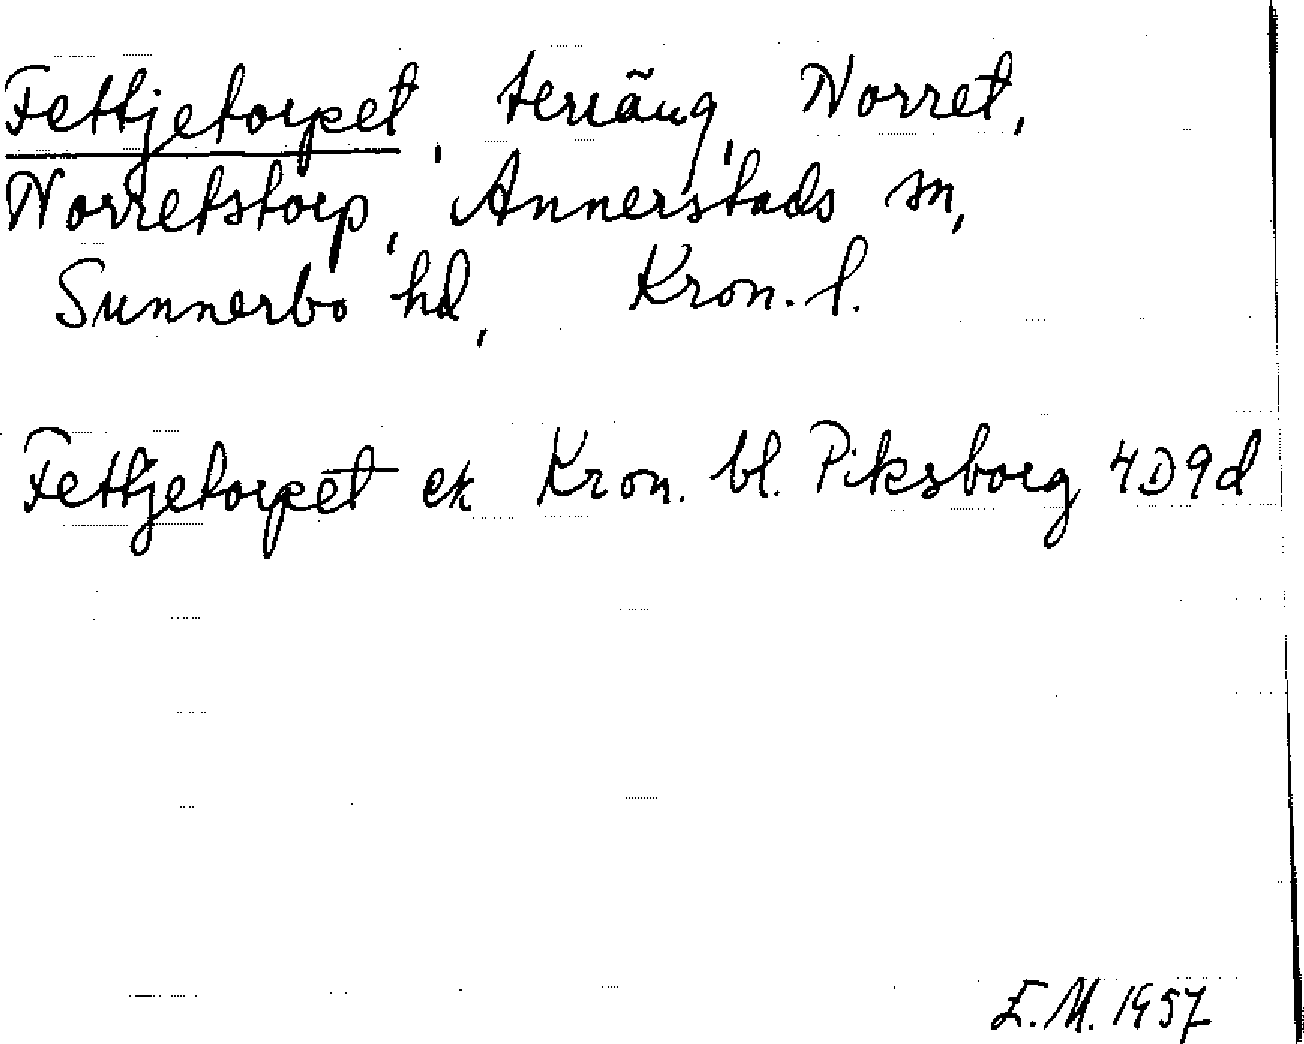 Fettjetorpet, teräng, Norret,
Norretstorp, Annerstads sn,
Sunnerbo hd, Kron. l.
Fettjetorpet ek Kron. bl. Piksborg 4D9d
E.M. 1957